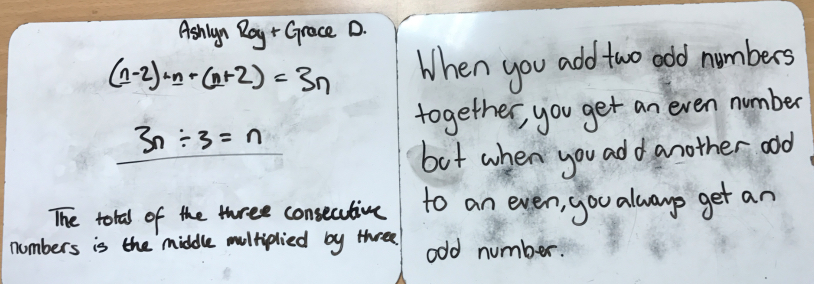 Ashlyn Roy + Grace D.
(n-2)+n+(n+2) = 3n
3n ÷ 3 = n
The total of the three consecutive
numbers is the middle multiplied by three
When you add two odd numbers
together, you get an even number
but when you add another odd
to an even, you always get an
odd number.